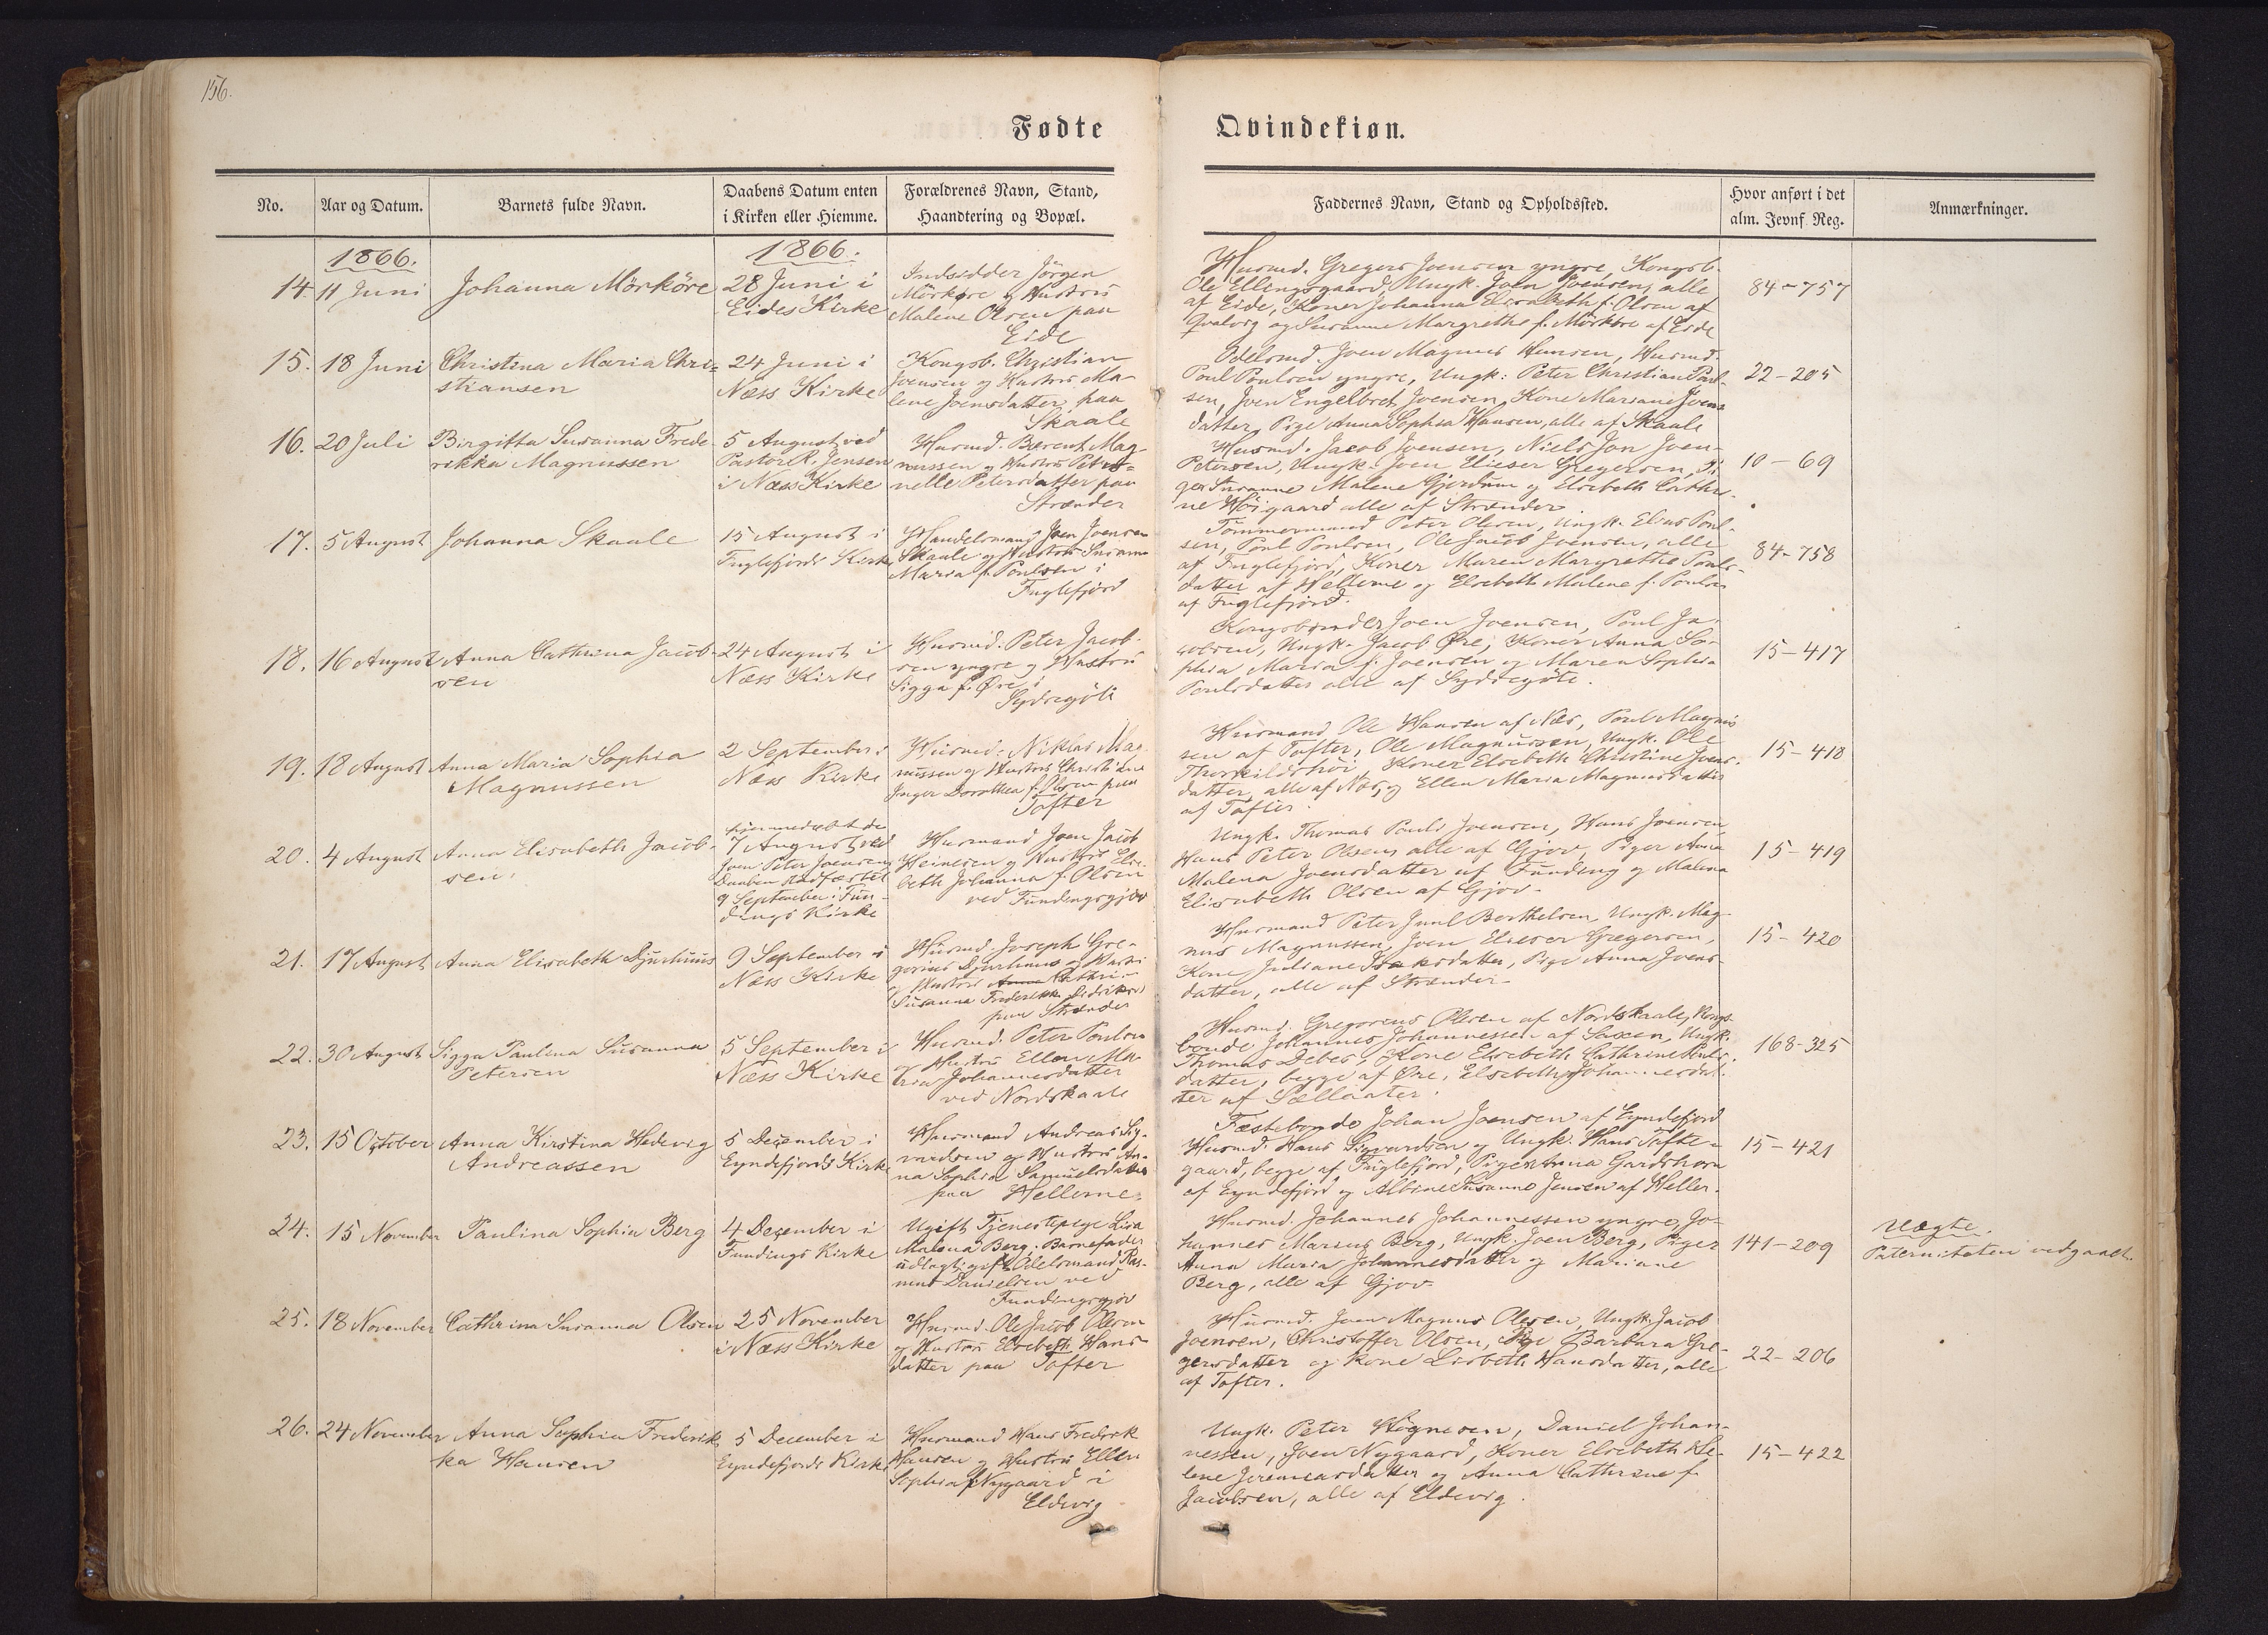 156.
Fødte
Qvindekiøn.
No.
Aar og Datum.
Barnets fulde Navn.
Daabens Datum enten
i Kirken eller Hiemme.
Forældrenes Navn, Stand,
Haandtering og Bopæl.
Faddernes Navn, Stand og Opholdssted.
Hvor anført i det
alm. Jevnf. Reg.
Anmærkninger.
1866.
1866.
14.
11 Juni
Johanna Mörköre
28 Juni i
Eides Kirke
Indsidder Jörgen
Mörköre og Hustrü
Malene Olsen paa
Eide
Husmd. Gregers Joensen yngre, Kongsb.
Ole Ellingsgaard, Ungk. Joen Joensen, alle
af Eide, Koner Johanna Elsabeth f. Olsen af
Qvalvig og Susanne Margrethe f. Mörköre af Eide
84-757
15.
18 Juni
Christina Maria Chri=
stiansen
24 Juni i
Næss Kirke
Kongsb. Christian
Joensen og Hustrü Ma-
lene Joensdatter paa
Skaale
Odelsmd. Joen Magnus Hansen, Husmd.
Poul Poulsen yngre, Ungk: Peter Christian Poul-
sen, Joen Engelbret Joensen, Kone Mariane Joens
datter, Pige Anna Sophia Hansen, alle af Skaale
22-205
16.
20 Juli
Birgitta Susanna Frede
rikka Magnussen
5 August ved
Pastor R. Jensen
i Næss Kirke
Husmd. Berent Mag-
nussen og Hustrü Petro=
nelle Petersdatter paa
Strænder
Husmd. Jacob Joensen, Niels Jon Joen-
Petersen, Ungk. Joen Elieser Gregersen, Pi-
ger Susanne Malene Gjordum og Elsebeth Cathri-
ne Höigaard alle af Strænder
10-69
17.
5 August
Johanna Skaale
15 August i
Fuglefjords Kirke
Handelsmand Joen Joensen
Skaale og Hustrü Susanne
Maria f. Poulsen i
Fuglefjord
Tömmermand Peter Olesen, Ungk. Elias Poul-
sen, Poul Poulsen, Ole Jacob Joensen, alle
af Fuglefjord, Koner Maren Margrethe Pouls-
datter af Hellerne og Elsebeth Malene f. Poulsen
af Fuglefjord.
84-758
18.
16 August
Anna Cathrina Jacob-
sen
24 August i
Næss Kirke
Husmd. Peter Jacob-
sen yngre og Hustrü
Sigga f. Øre i
Sydregöte
Kongsbönder Joen Joensen, Poul Ja-
cobsen, Ungk. Jacob Øre, Koner Anna So-
phia Maria f. Joensen og Maren Sophia
Poulsdatter alle af Sydregöte.
15-417
19.
18 August
Anna Maria Sophia
Magnussen
2 September i
Næss Kirke
Husmd. Niklas Mag
nussen og Hustrü Christiane
Inger Dorothea f. Olsen paa
Tofter
Husmand Ole Hansen af Næs, Poul Magnus
sen af Tofter, Ole Magnussen, Ungk. Ole
Thorkildshöi, Koner Elsebeth Christine Joens-
datter, alle af Næs, og Ellen Maria Magnusdatter
af Tofter.
15-418
20.
4 August
Anna Elisabeth Jacob-
sen.
hjemmedöbt den
7 August ved
Joen Peter Joensen,
Daaben stadfæstet
9 September i Fun-
dings Kirke
Husmand Joen Jacob
Heinesen og Hustrü Else-
beth Johanna f. Olsen
ved Fundingsgjov
Ungk. Thomas Pauli Joensen, Hans Joensen,
Hans Peter Olsen, alle af Gjov, Piger Anna
Malena Joensdatter af Funding og Malena
Elisabeth Olsen af Gjov.
15-419
21.
17 August
Anna Elisabeth Djurhuus
9 September i
Næss Kirke
Husmd. Joseph Gre-
gorius Djurhuus og Hust-
og Hustrü Anna Cathri-
Susanna Frederikke Didriksen
paa Strænder
Husmand Peter Juul Berthelsen, Ungk. Mag-
nus Magnussen, Joen Elieser Gregersen,
Kone Juliane Isaksdatter, Pige Anna Joens-
datter, alle af Strænder.
15-420
22.
30 August
Sigga Paulina Susanna
Petersen
5 September i
Næss Kirke
Husmd. Peter Poulsen
og Hustrü Ellen Ma-
ria Johannesdatter
ved Nordskaale
Husmd. Gregorius Olesen af Nordskaale, Kongs-
bonde Johannes Johannessen af Saxen, Ungk.
Thomas Debes, Kone Elsebeth Cathrine Pouls-
datter, begge af Øre, Elsebeth Johannesdat-
ter af Sællaater.
168-325
23.
15 October
Anna Kirstina Hedevig
Andreassen
5 December i
Eyndefjords Kirke
Husmand Andreas Sig-
vardsen og Hustrü An-
na Sophia Samuelsdatter
paa Hellerne.
Fæstebonde Johan Joensen af Eyndefjord
Husmd. Hans Sigvardsen og Ungk. Hans Tofte-
gaard, begge af Fuglefjord, Piger Anna Gardshorn
af Eyndefjord og Albine Susanne Jensen af Heller.
15-421
24.
15 November
Paulina Sophia Berg
4 December i
Fundings Kirke
Ugift Tjenestepige Lisa
Malena Berg, Barnefader
udlagt gift Odelsmand Ras-
mus Danielsen ved
Fundingsgjov
Husmd. Johannes Johannessen yngre, Jo-
hannes Marius Berg, Ungk. Joen Berg, Piger
Anna Maria Johannesdatter og Mariane
Berg, alle af Gjov
141-209
Uægte.
Paterniteten vedgaaet.
25.
18 November
Cathrina Susanna Olsen
25 November
i Næss Kirke
Husmd. Ole Jacob Olsen
og Hustrü Elsebeth Hans
datter paa Tofter
Husmd. Joen Magnus Olesen, Ungk. Jacob
Joensen, Christoffer Olsen, Pige Barbara Gre-
gersdatter og Kone Lisbeth Hansdatter, alle
af Tofter.
22-206
26.
24 November
Anna Sophia Frederik
ka Hansen
5 December i
Eyndefjords Kirke
Husmand Hans Fredrik
Hansen og Hustrü Ellen
Sophia f. Nygaard i
Eldevig
Ungk. Peter Högnesen, Daniel Johan-
nessen, Joen Nygaard, Koner Elsebeth He-
lene Jeremiasdatter og Anna Cathrine f.
Jacobsen, alle af Eldevig.
15-422